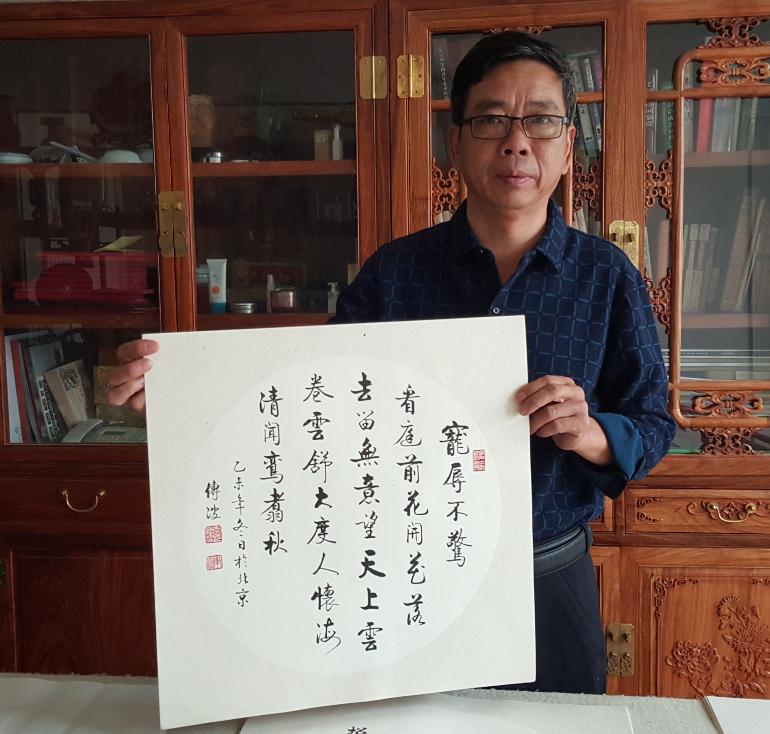 寵辱不驚
看庭前花開花落
去留無意望天上雲
卷雲舒大度人懷海
清聞鸞翥秋
乙未年冬日於北京
傳波